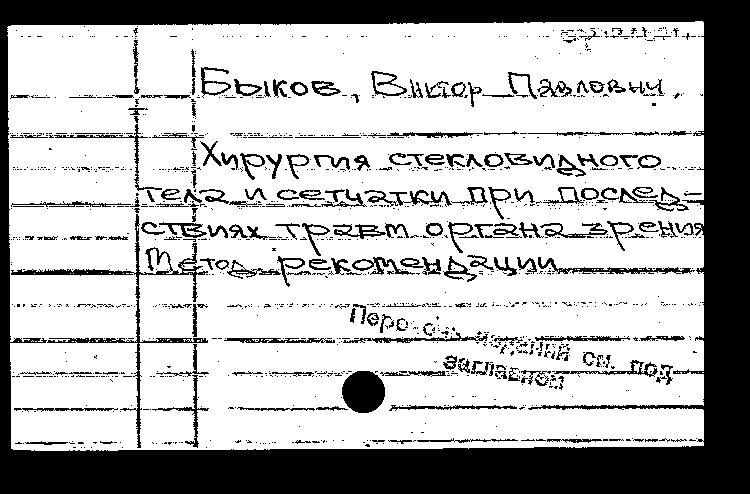 Быков, Виктор Павлович.
Хирургия стекловидного
тела и сетчатки при послед=
ствиях травм органа зрения
Метод. рекомендации
изданий см. под
заглавном